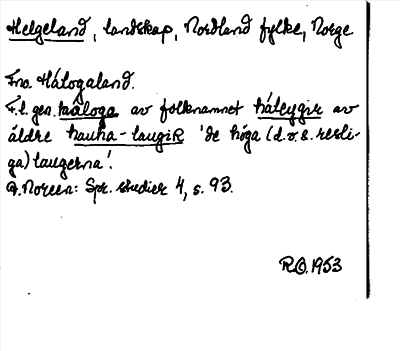 Helgeland, landskap, Nordland fylke, Norge
Fno. Hálogaland.
F.l. gen. háloga av folknamnet háleygir av
äldre hauha-laugiR 'de höga (d.v.s. resli-
ga) laugerna'.
A. Noreen: Spr. studier 4, s. 93.
R.O. 1953